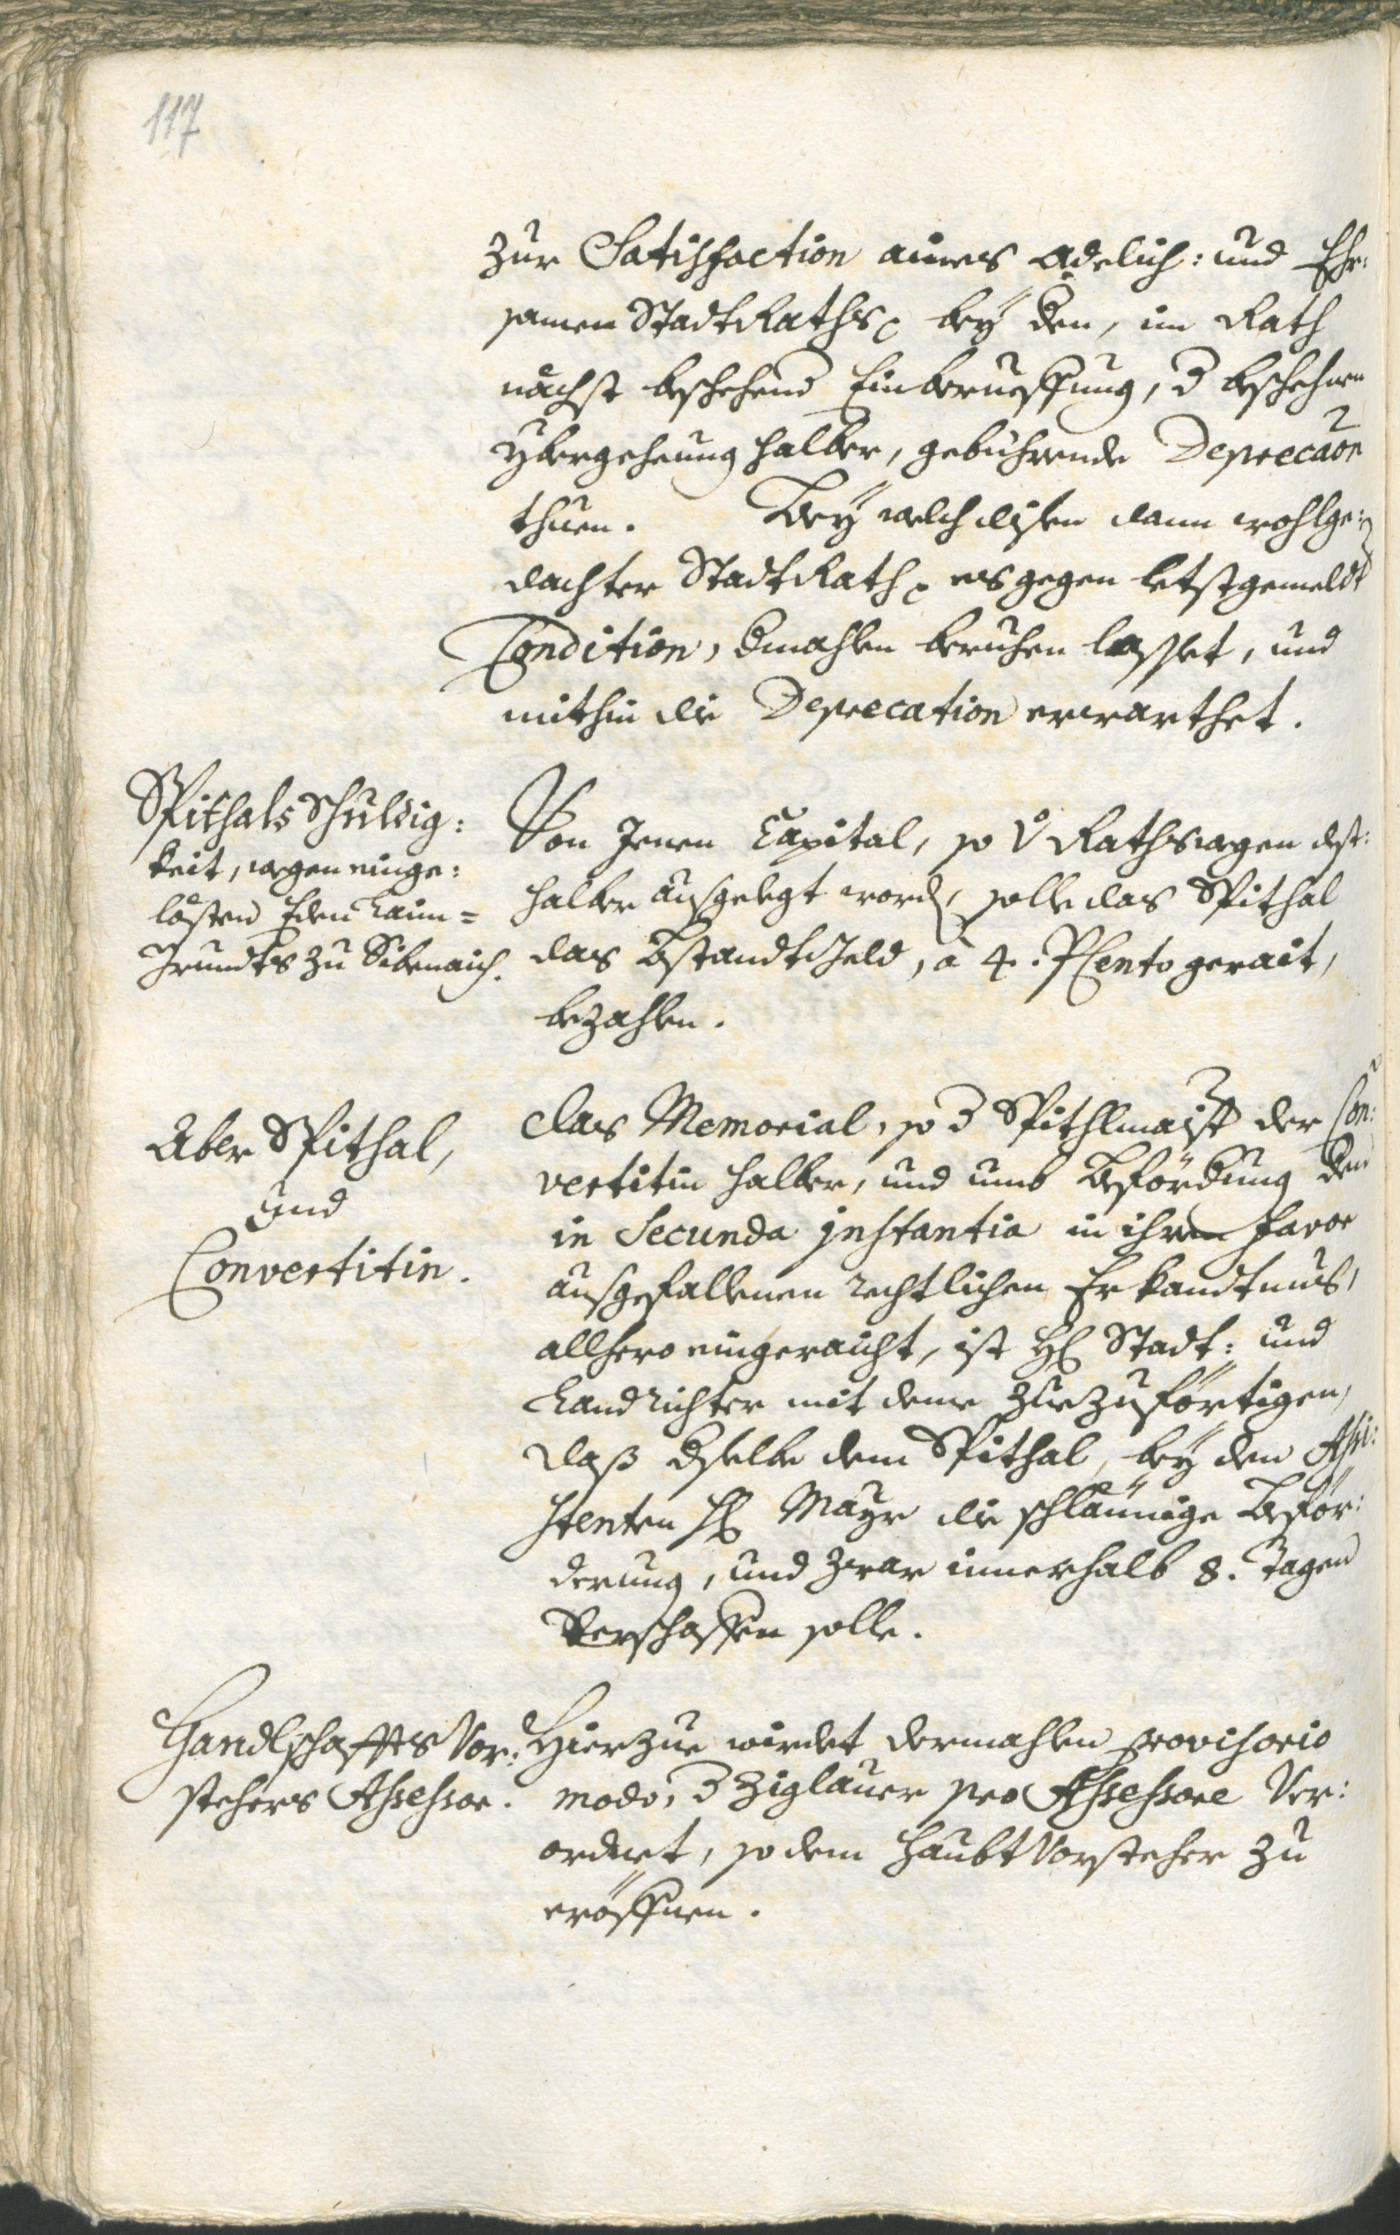 117
zur Satisfaction aines Adelich: und Ehr:
samen Stadt Raths, bey den, im Rath
nächst beschehend Einberueffung, d beschehnen
Ybergehung halber, gebührende Deprecaon
thuen. Bey welch disen dann wohlge:
dachter Stadt Rath, es gegen letstgemeldt
Condition, dmahlen beruhen lasset, und
mithin die Deprecation erwarthet.
Spithals Schuldig:
keit, wegen einge:
lösten Eden Laim=
Grundts zu Sibenaich.
Von Jenen Capital, so v Rathswegen dest:
halber ausgelegt word, solle das Spithal
das Bstandt Geld, à 4. PCento gerait,
bezahlen.
Aber Spithal,
und
Convertitin.
Das Memorial, so d Spithlmaist der Con:
vertitin halber, und umb Beförderung den
in Secunda jnstantia in ihren favor
ausgefallenen rechtlichen Erkandtnus,
allhero eingeraicht, ist H Stadt: und
Landrichter mit deme zuezuförtigen,
daß dselbe dem Spithal, bey den Assi:
stenten H Mayr die schläunige Beför:
derung, und zwar innerhalb 8. Tagen
verschaffen solle.
Handlschaffts Vor:
stehers Assessor.
Hierzue wirdet dermahlen provisorio
modo, d Ziglauer pro Assessore Ver:
ordnet, so dem Haubt Vorsteher zu
eröffnen.